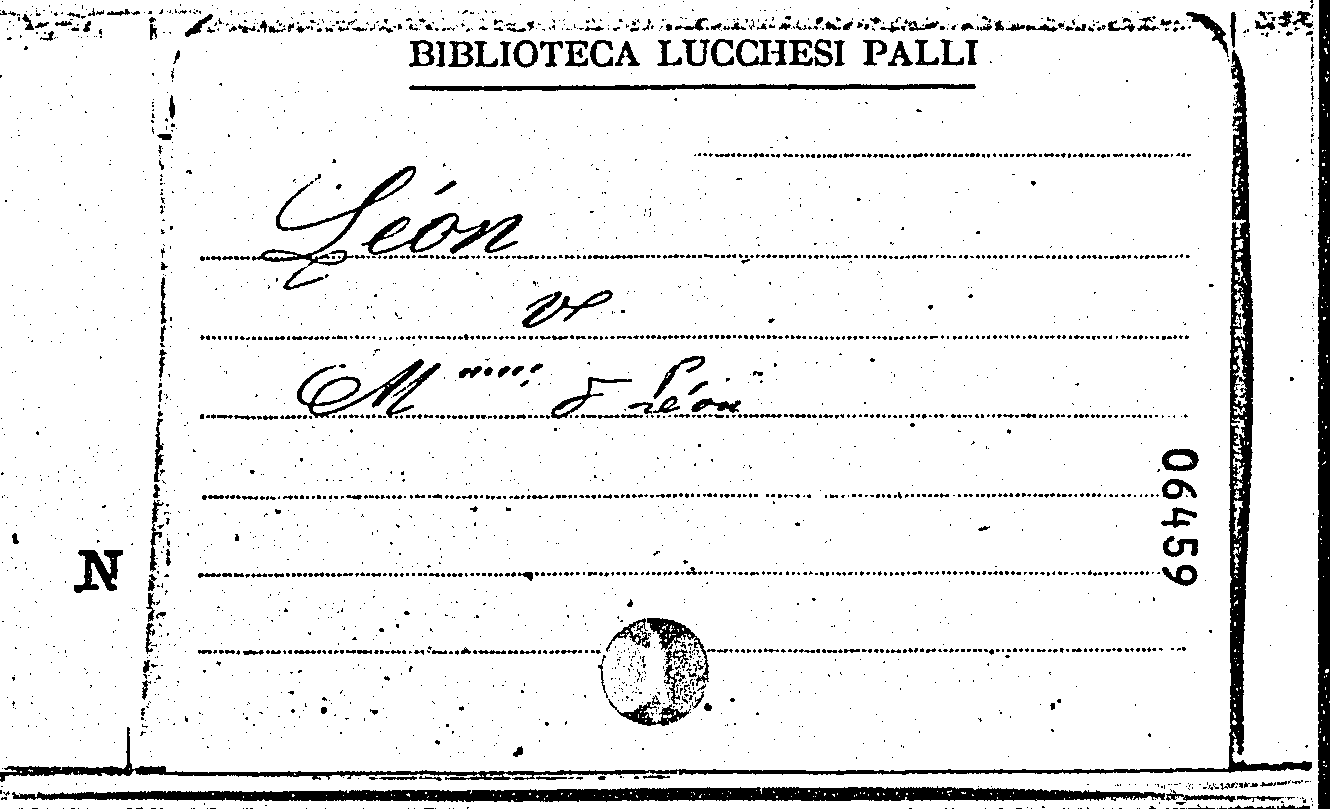 BIBLIOTECA LUCCHESI PALLI
Léon
M d Léon
N
06459